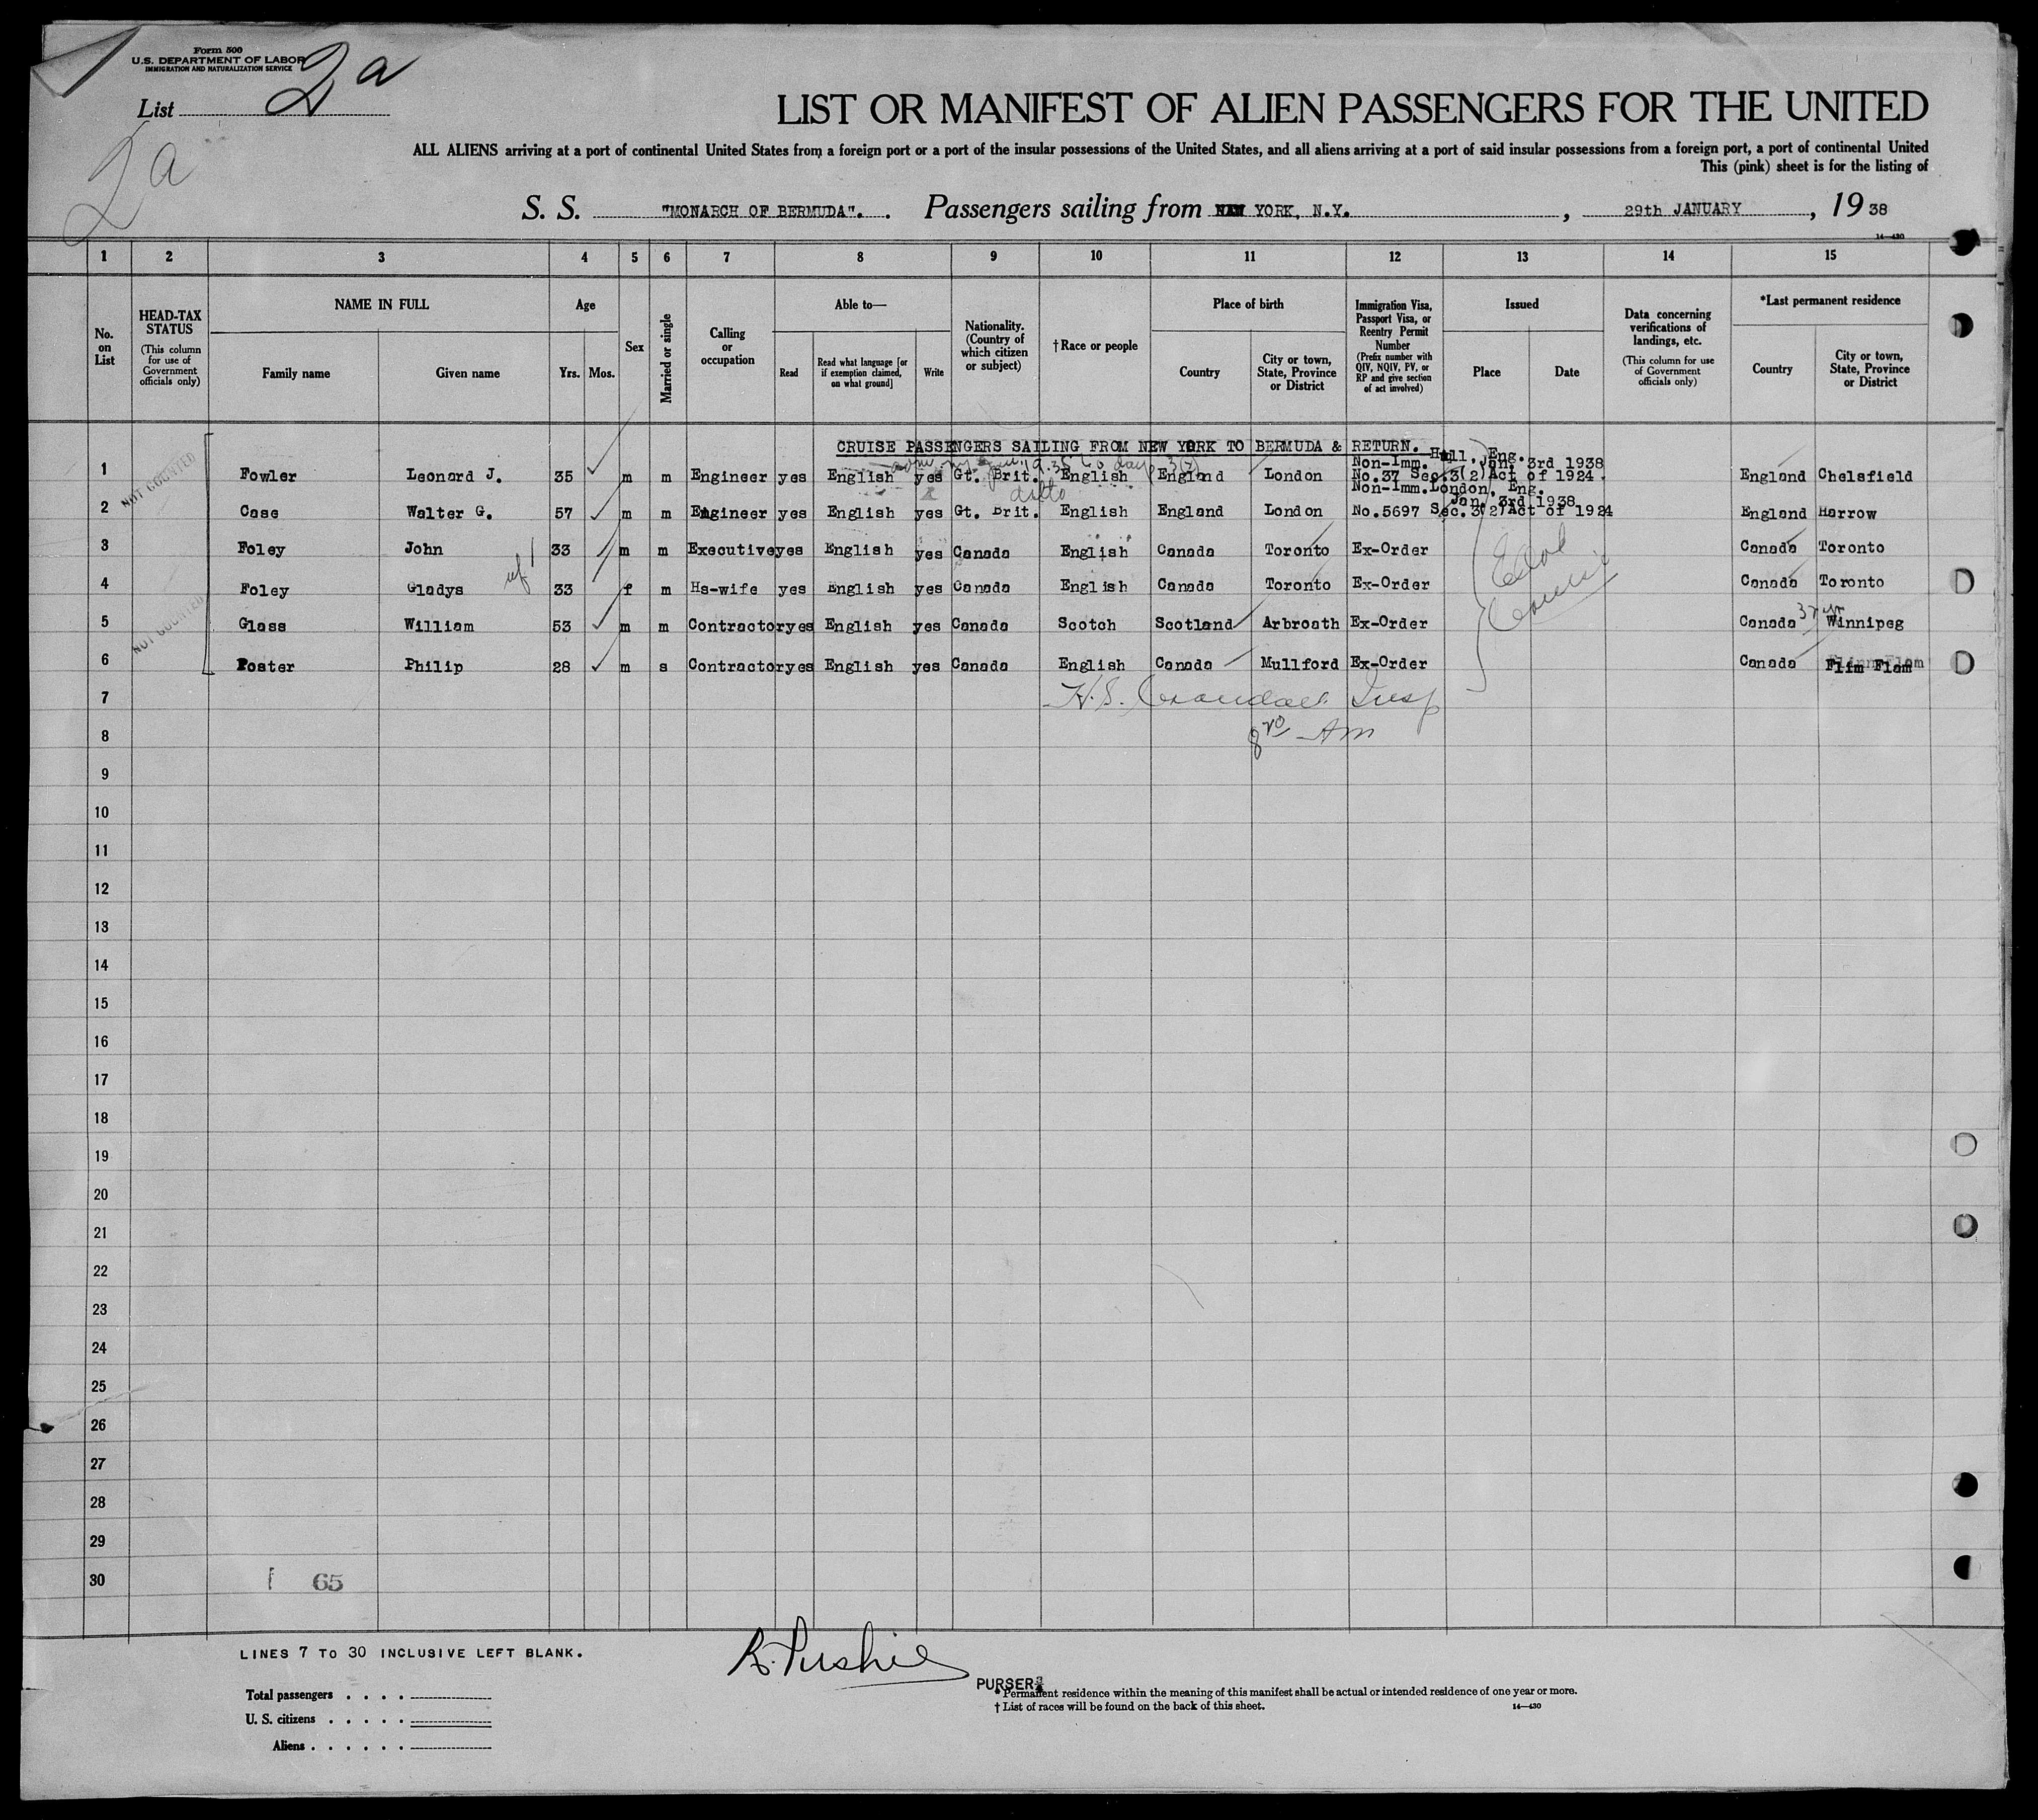 Form 500
U.S. DEPARTMENT OF LABOR
IMMIGRATION AND NATURALIZATION SERVICE
List 2a
2a
LIST OR MANIFEST OF ALIEN PASSENGERS FOR THE UNITED
ALL ALIENS arriving at a port of continental United States from a foreign port or a port of the insular possessions of the United States, and all aliens arriving at a port of said insular possessions from a foreign port, a port of continental United
This (pink) sheet is for the listing of
S. S. "MONARCH OF BERMUDA". Passengers sailing from NEW YORK, N.Y., 29th JANUARY, 1938
14—430
1 2 3 4 5 6 7 8 9 10 11 12 13 14 15
No. on List
HEAD-TAX STATUS (This column for use of Government officials only)
NAME IN FULL
Family name
Given name
Age
Yrs. Mos.
Sex
Married or single
Calling or occupation
Able to—
Read
Read what language [or if exemption claimed, on what ground]
Write
Nationality. (Country of which citizen or subject)
†Race or people
Place of birth
Country
City or town, State, Province or District
Immigration Visa, Passport Visa, or Reentry Permit Number (Prefix number with QIV, NQIV, PV, or RP and give section of act involved)
Issued
Place
Date
Data concerning verifications of landings, etc. (This column for use of Government officials only)
*Last permanent residence
Country
City or town, State, Province or District
CRUISE PASSENGERS SAILING FROM NEW YORK TO BERMUDA & RETURN.
NOT COUNTED
Non-Imm. Hull, Eng. Jan. 3rd 1938
1 Fowler Leonard J. 35 m m Engineer yes English yes Gt. Brit. English England London No.37 Sec.3(2)Act of 1924. England Chelsfield
ditto
Non-Imm. London, Eng. Jan. 3rd 1938
2 Case Walter G. 57 m m Engineer yes English yes Gt. Brit. English England London No.5697 Sec.3(2)Act of 1924 England Harrow
3 Foley John 33 m m Executive yes English yes Canada English Canada Toronto Ex-Order Canada Toronto
4 Foley Gladys wf 33 f m Hs-wife yes English yes Canada English Canada Toronto Ex-Order Canada Toronto
NOT COUNTED
5 Glass William 53 m m Contractor yes English yes Canada Scotch Scotland Arbroath Ex-Order Canada Winnipeg
6 Foster Philip 28 m s Contractor yes English yes Canada English Canada Mullford Ex-Order Canada Flim Flam
7
8
9
10
11
12
13
14
15
16
17
18
19
20
21
22
23
24
25
26
27
28
29
30
65
LINES 7 TO 30 INCLUSIVE LEFT BLANK.
PURSER
Total passengers
U. S. citizens
Aliens
* Permanent residence within the meaning of this manifest shall be actual or intended residence of one year or more.
† List of races will be found on the back of this sheet.
14—430